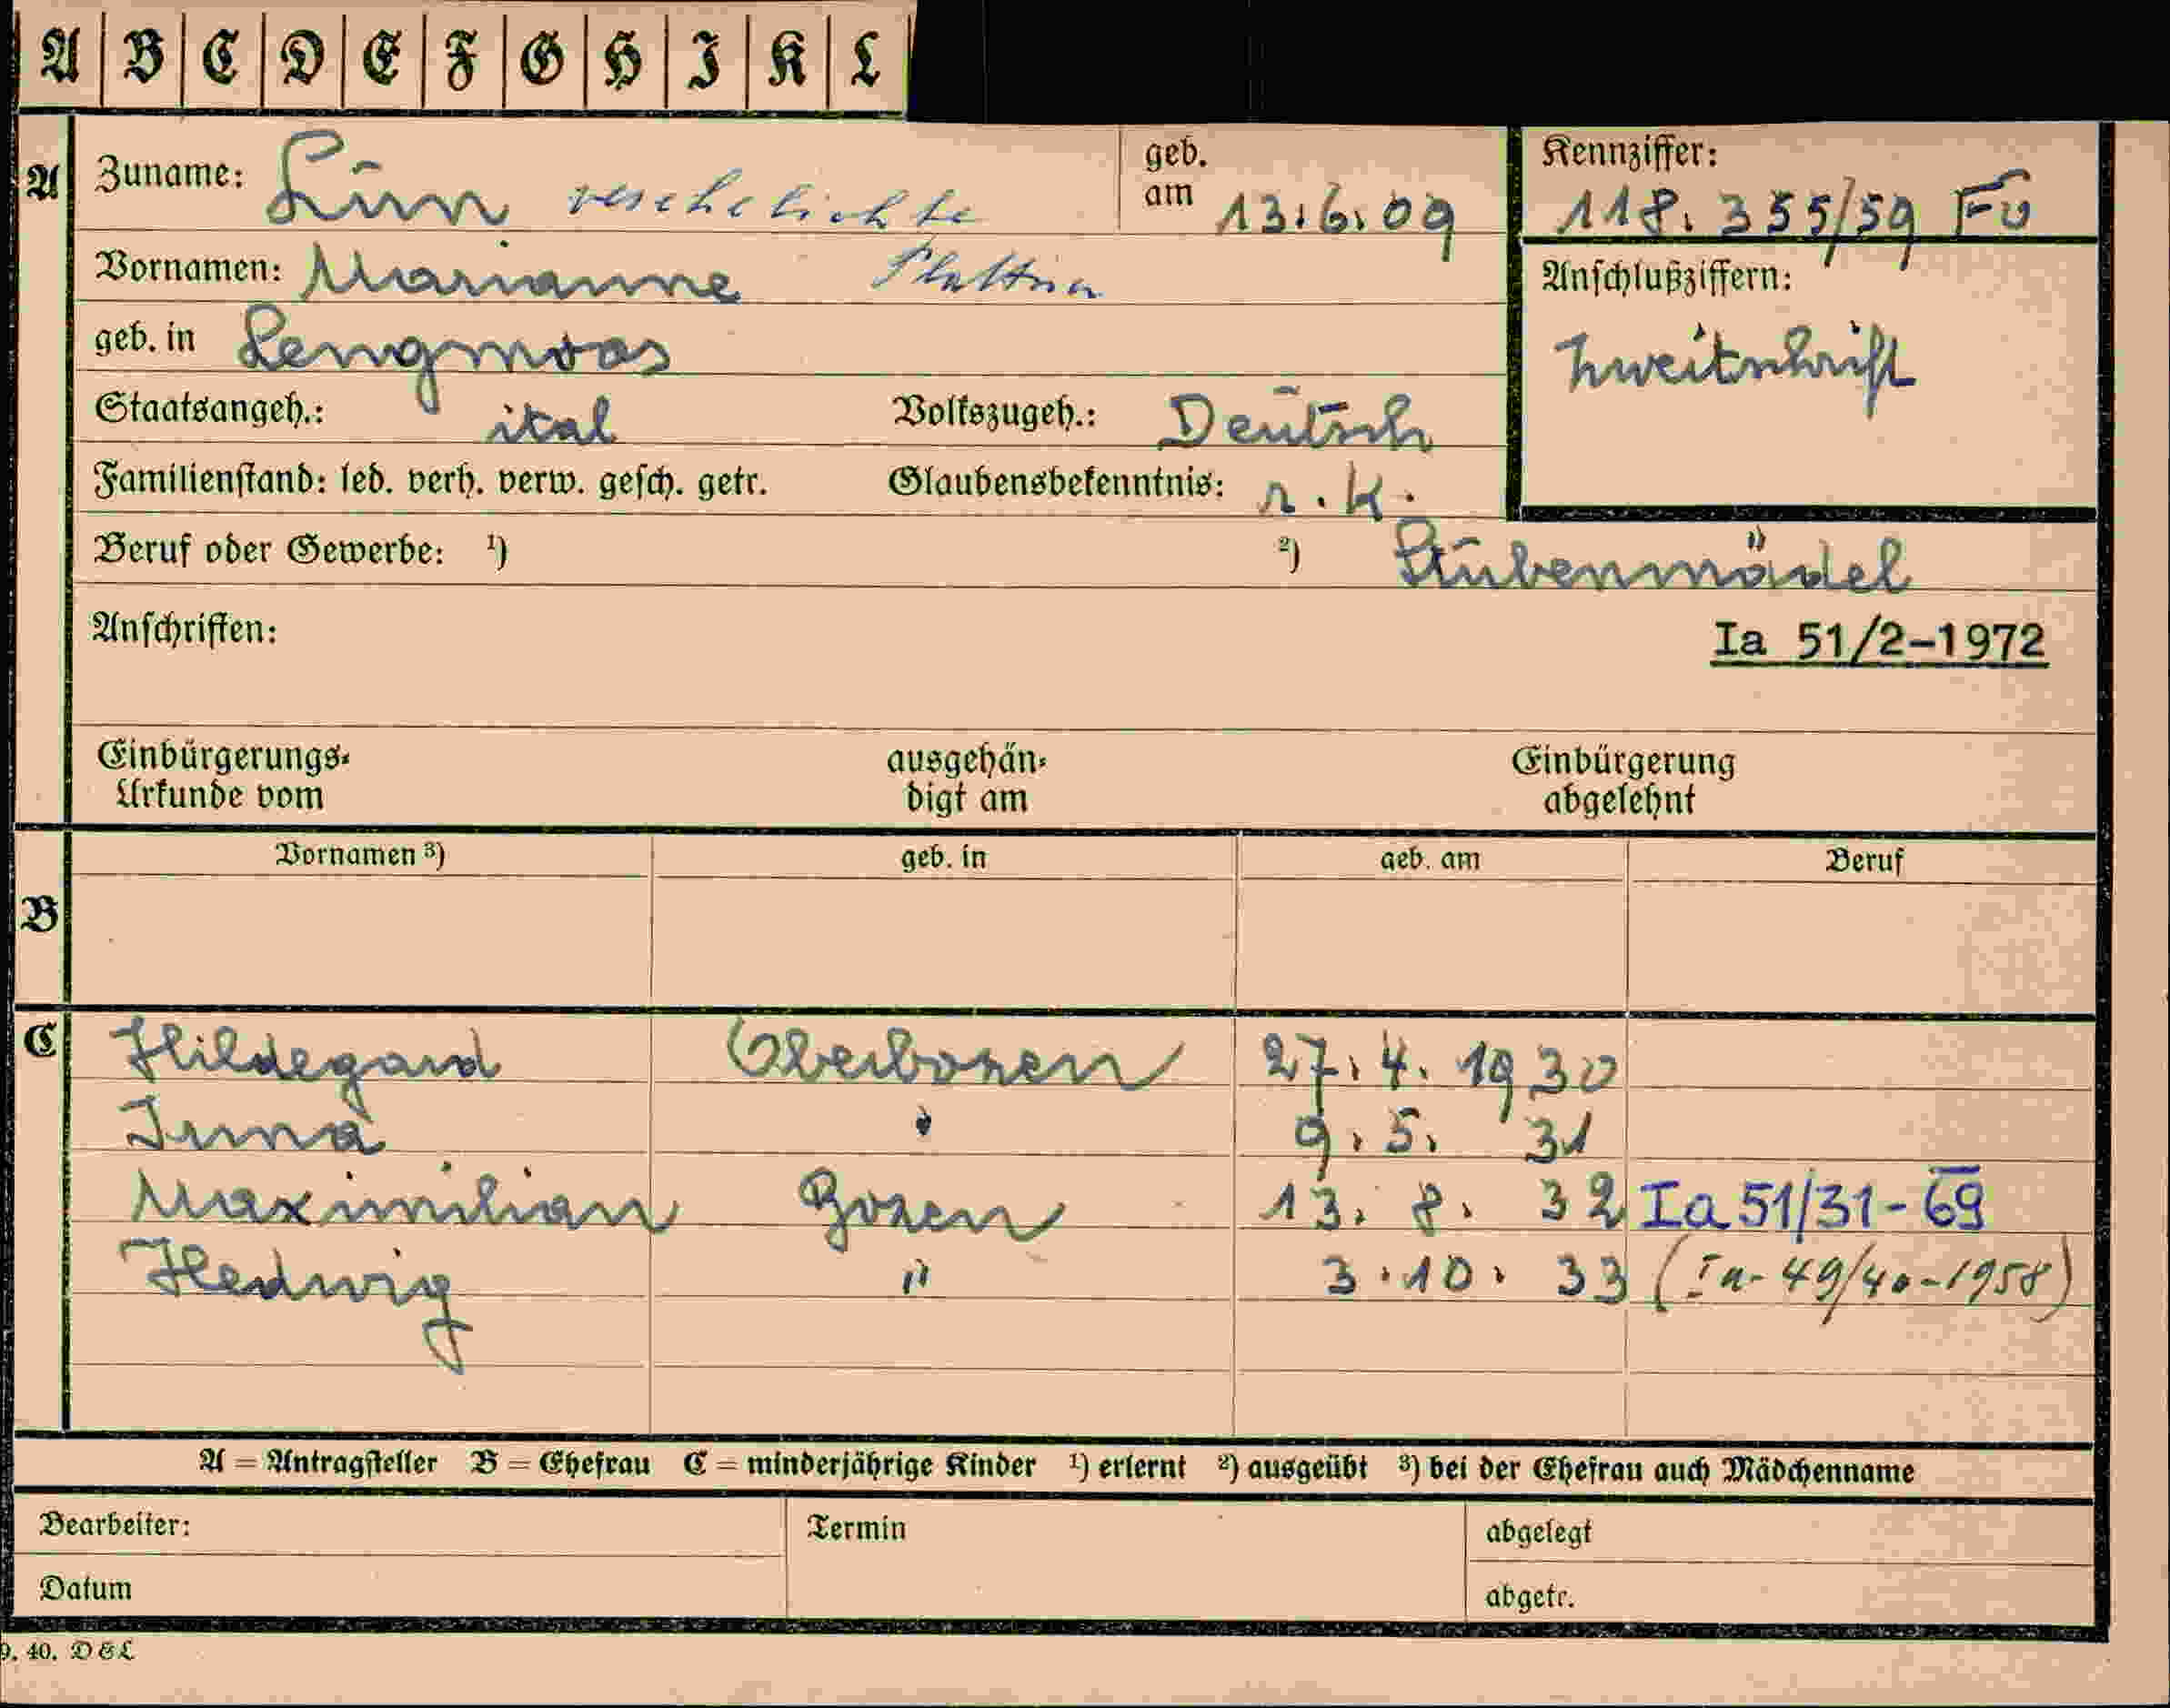 A B C D E F G H I K L
A Zuname: Lun verehelichte geb. am 13.6.09 Kennziffer: 118.355/59 Fü
Vornamen: Marianne Plattner Anschlußziffern:
geb. in Lengmoos Zweitschrift
Staatsangeh.: ital Volkszugeh.: Deutsch
Familienstand: led. verh. verw. gesch. getr. Glaubensbekenntnis: r.k.
Beruf oder Gewerbe: ¹) ²) Stubenmädel
Anschriften: Ia 51/2-1972
Einbürgerungs- ausgehän- Einbürgerung
Urkunde vom digt am abgelehnt
Vornamen ³) geb. in geb. am Beruf
B
C Hildegard Oberbozen 27.4.1930
Irma " 9.5. 31
Maximilian Bozen 13. 8. 32 Ia 51/31-69
Hedwig " 3.10. 33 (Ia-49/40-1958)
A = Antragsteller B = Ehefrau C = minderjährige Kinder ¹) erlernt ²) ausgeübt ³) bei der Ehefrau auch Mädchenname
Bearbeiter: Termin abgelegt
Datum abgetr.
9. 40. D&L